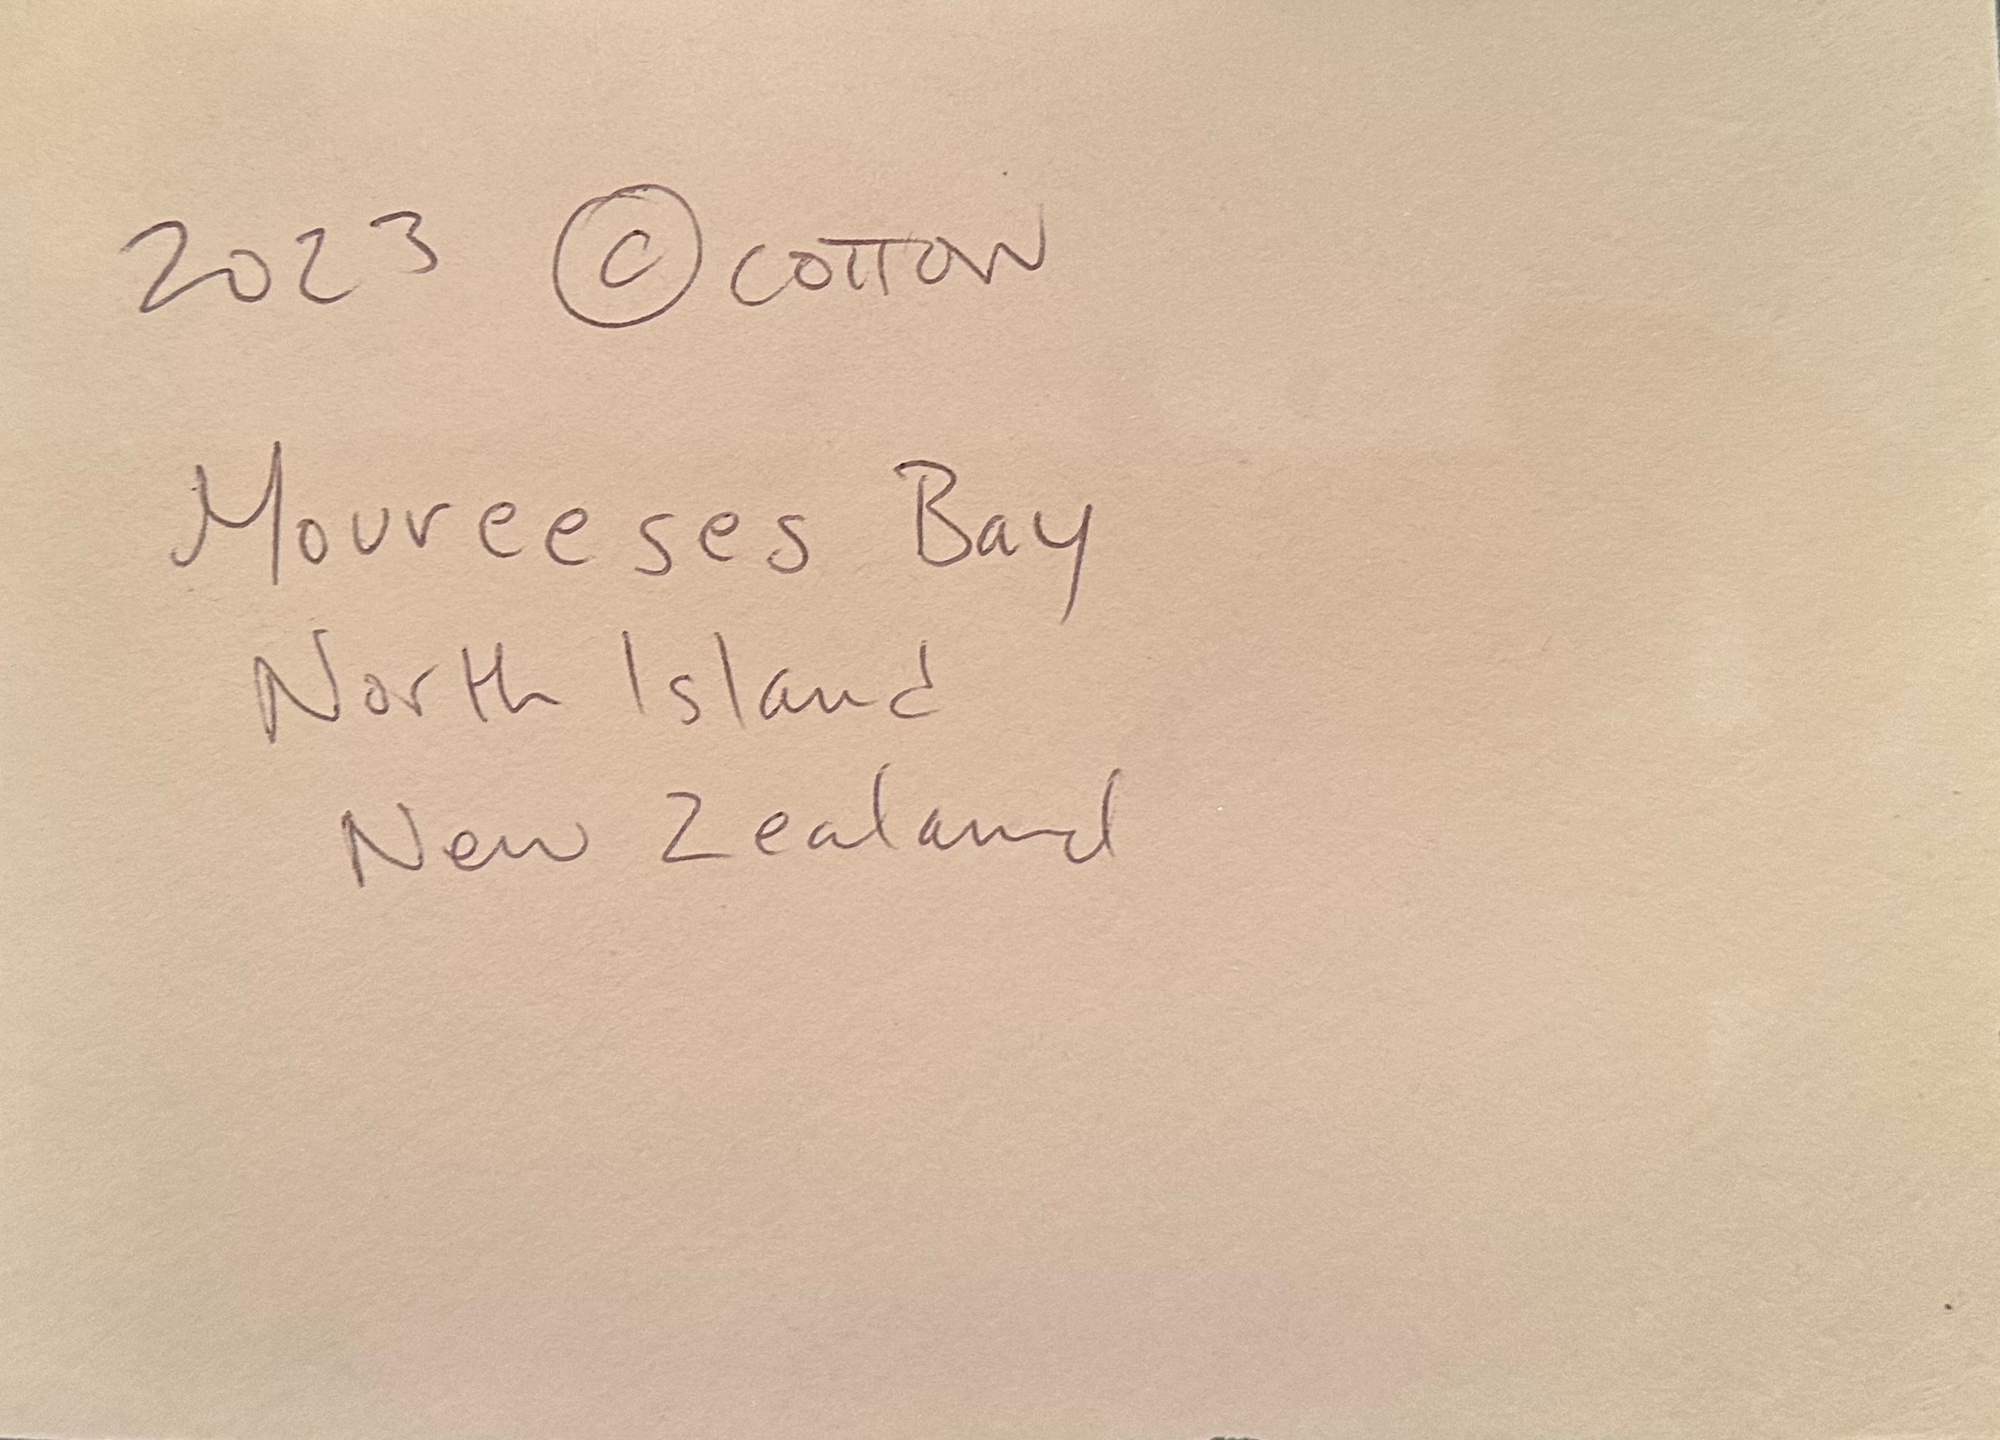 2023 © COTTON
Moureeses Bay
North Island
New Zealand